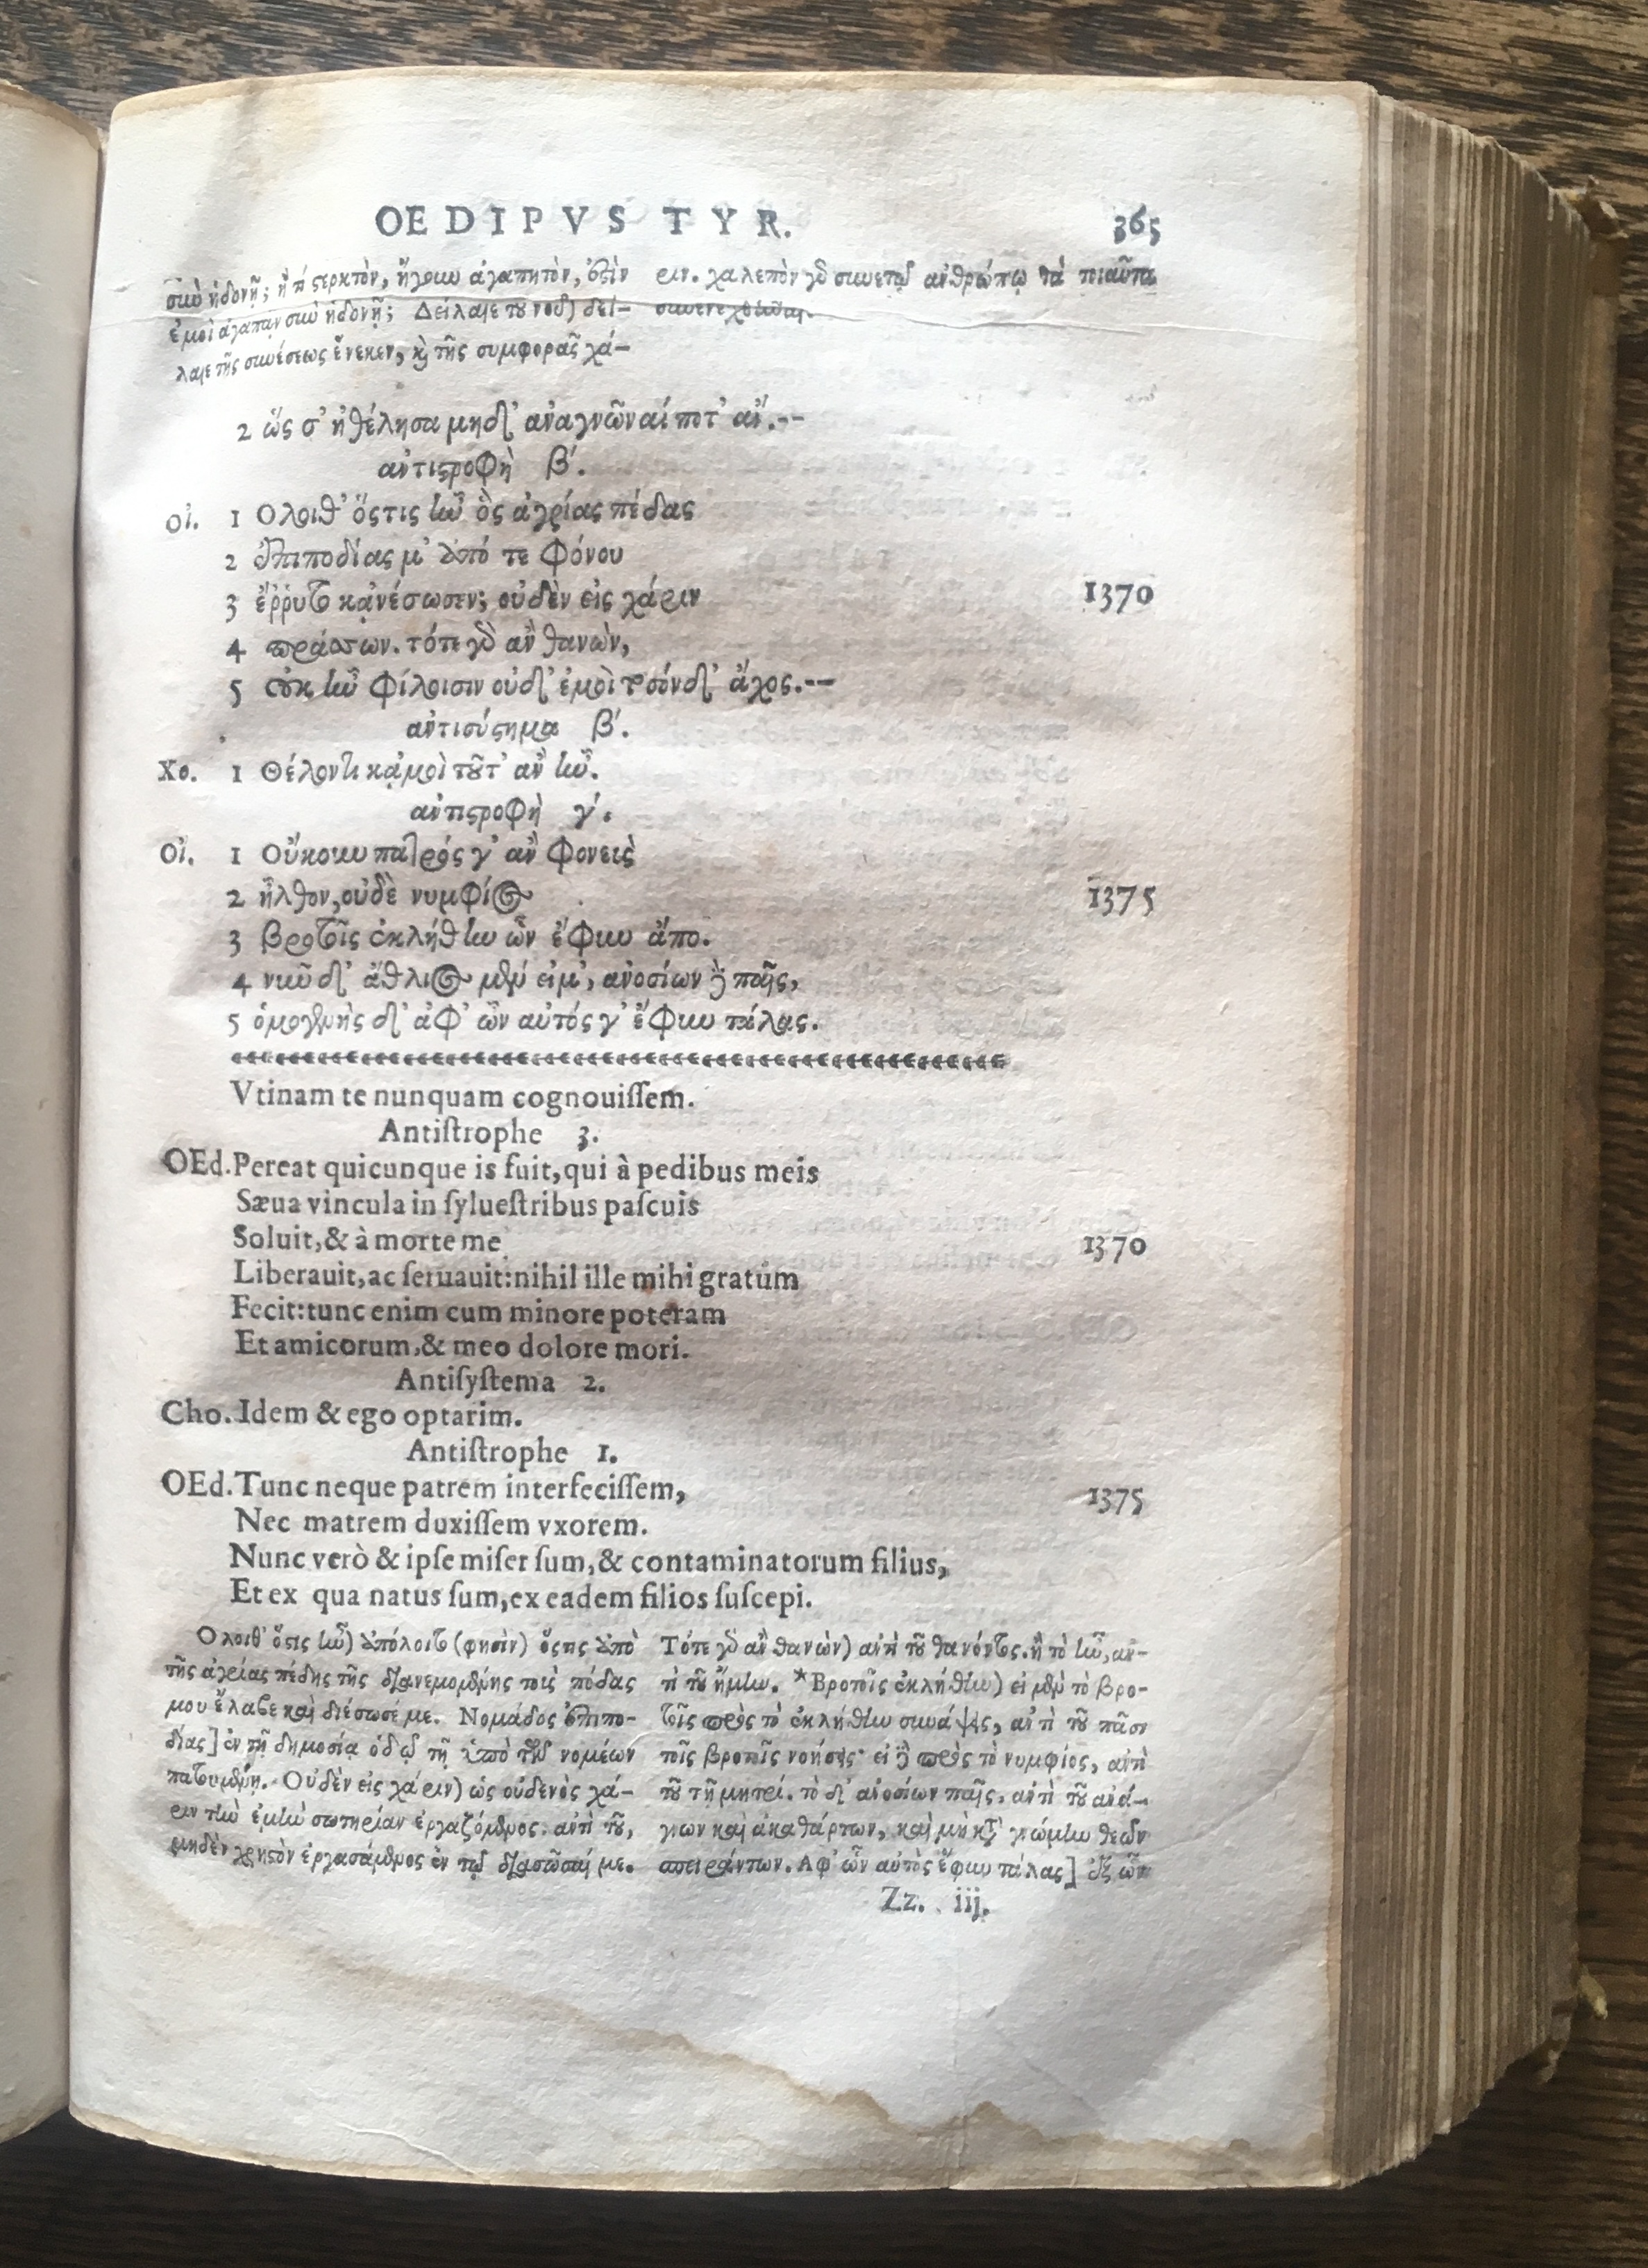 OEDIPVS TYR. 365
σὺν ἡδονῇ; ἢ τί στερκτὸν, ἤγουν ἀγαπητὸν, ἐστὶν
ἐμοὶ ἀγαπᾷν σὺν ἡδονῇ; Δείλαιε τοῦ νοῦ) δεί-
λαιε τῆς συνέσεως ἕνεκεν, καὶ τῆς συμφορᾶς χά-
ριν. χαλεπὸν γὰρ συνετῷ ἀνθρώπῳ τὰ τοιαῦτα
2 ὥς σ' ἠθέλησα μηδ' ἀναγνῶναί ποτ' ἄν.--
ἀντιστροφὴ β´.
Οἰ. 1 Ολοιθ' ὅστις ἦν ὃς ἀγρίας πέδας
2 ἐπιποδίας μ' ἀπό τε φόνου
3 ἔῤῥυτο κᾀνέσωσεν; οὐδὲν εἰς χάριν 1370
4 πράσσων. τότε γὰρ ἂν θανὼν,
5 οὐκ ἦν φίλοισιν οὐδ' ἐμοὶ τοσόνδ' ἄχος.--
ἀντισύστημα β´.
Χο. 1 Θέλοντι κᾀμοὶ τοῦτ' ἂν ἦν.
ἀντιστροφὴ γ´.
Οἰ. 1 Οὔκουν πατρός γ' ἂν φονεὺς
2 ἦλθον, οὐδὲ νυμφίος 1375
3 βροτοῖς ἐκλήθην ὧν ἔφυν ἄπο.
4 νῦν δ' ἄθλιος μὲν εἰμ', ἀνοσίων δὲ παῖς,
5 ὁμογενὴς δ' ἀφ' ὧν αὐτός γ' ἔφυν τάλας.
Vtinam te nunquam cognouiſſem.
Antiſtrophe 3.
OEd. Pereat quicunque is fuit, qui à pedibus meis
Sæua vincula in ſylueſtribus paſcuis
Soluit, & à morte me 1370
Liberauit, ac ſeruauit: nihil ille mihi gratum
Fecit: tunc enim cum minore poteram
Et amicorum, & meo dolore mori.
Antiſyſtema 2.
Cho. Idem & ego optarim.
Antiſtrophe 1.
OEd. Tunc neque patrem interfeciſſem, 1375
Nec matrem duxiſſem vxorem.
Nunc verò & ipſe miſer ſum, & contaminatorum filius,
Et ex qua natus ſum, ex eadem filios ſuſcepi.
Ολοιθ' ὅστις ἦν) ἀπόλοιτο (φησὶν) ὅστις ἀπὸ
τῆς ἀγρίας πέδης τῆς διανεμομένης τοὺς πόδας
μου ἔλαβε καὶ διέσωσέ με. Νομάδος ἐπιπο-
δίας] ἐν τῇ δημοσίᾳ ὁδῷ τῇ ὑπὸ τῶν νομέων
πατουμένῃ. Οὐδὲν εἰς χάριν) ὡς οὐδενὸς χά-
ριν τὴν ἐμὴν σωτηρίαν ἐργαζόμενος: ἀντὶ τοῦ,
μηδὲν χρηστὸν ἐργασάμενος ἐν τῷ διασῶσαί με.
Τότε γὰρ ἂν θανὼν) ἀντὶ τοῦ θανόντος. ἢ τὸ ἦν, ἀν-
τὶ τοῦ ἤμην. *Βροτοῖς ἐκλήθην) εἰ μὲν τὸ βρο-
τοῖς πρὸς τὸ ἐκλήθην συνάψεις, ἀντὶ τοῦ πᾶσι
τοῖς βροτοῖς νοήσεις· εἰ δὲ πρὸς τὸ νυμφίος, ἀντὶ
τοῦ τῇ μητρί. τὸ δ' ἀνοσίων παῖς, ἀντὶ τοῦ ἀνά-
γνων καὶ ἀκαθάρτων, καὶ μὴ κατὰ γνώμην θεῶν
σπειράντων. Αφ' ὧν αὐτὸς ἔφυν τάλας] ἐξ ὧν
Zz. iij.